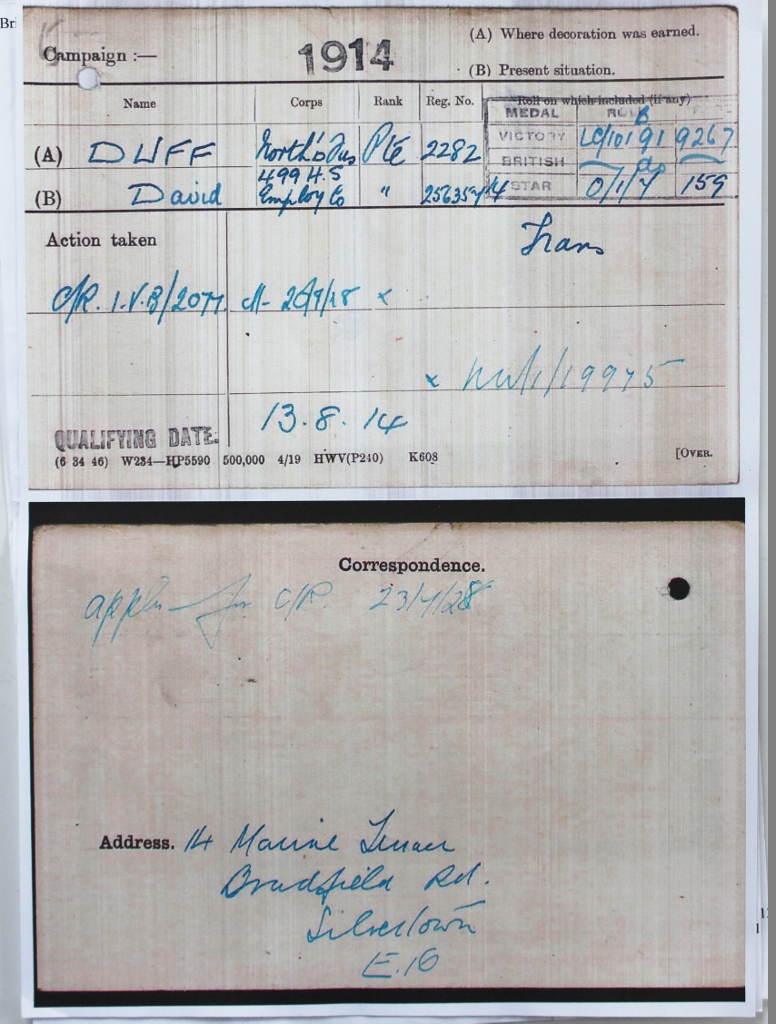 Campaign :— 1914 (A) Where decoration was earned.
(B) Present situation.
Name Corps Rank Reg. No. Roll on which included (if any)
MEDAL ROLL
(A) DUFF North'd Fus Pte 2282 VICTORY LC/101 B 91 9267
BRITISH do
499 H.S
(B) David Employ Co " STAR 0/1/7 159
Action taken Trans
C/R. I.V.B/2077
13.8.14
QUALIFYING DATE.
(6 34 46) W234—HP5590 500,000 4/19 HWV(P240) K608 [OVER.
Correspondence.
appln for C/R.
Address. 14 Marine Terrace
Bradfield Rd.
Silvertown
E.16